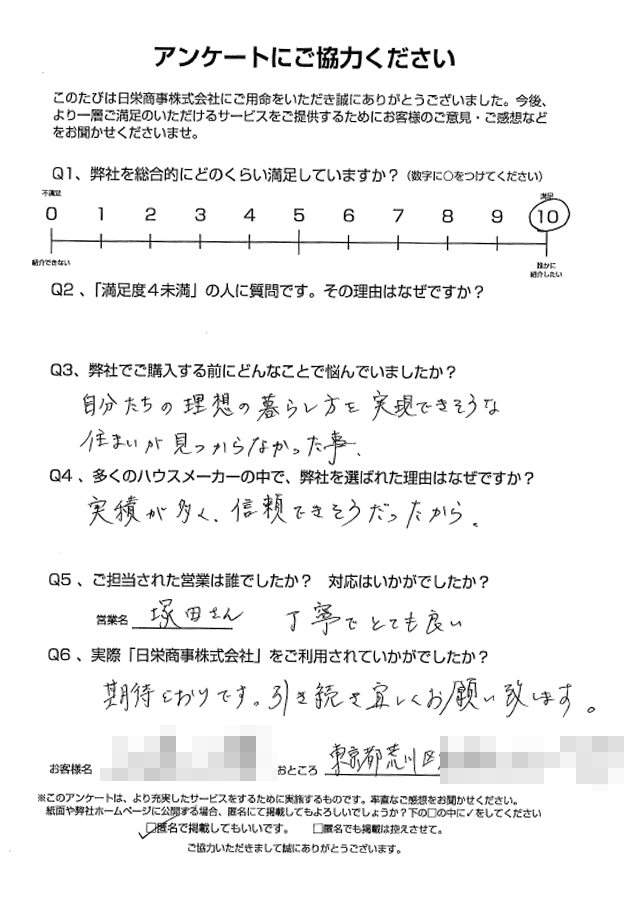 アンケートにご協力ください
このたびは日栄商事株式会社にご用命をいただき誠にありがとうございました。今後、
より一層ご満足のいただけるサービスをご提供するためにお客様のご意見・ご感想など
をお聞かせくださいませ。
Q1、弊社を総合的にどのくらい満足していますか?（数字に○をつけてください）
不満足 満足
0 1 2 3 4 5 6 7 8 9 10
紹介できない 誰かに
紹介したい
Q2、「満足度4未満」の人に質問です。その理由はなぜですか?
Q3、弊社でご購入する前にどんなことで悩んでいましたか?
自分たちの理想の暮らし方を実現できそうな
住まいが見つからなかった事、
Q4、多くのハウスメーカーの中で、弊社を選ばれた理由はなぜですか?
実積が多く、信頼できそうだったから。
Q5、ご担当された営業は誰でしたか? 対応はいかがでしたか?
営業名 塚田さん 丁寧でとても良い
Q6、実際「日栄商事株式会社」をご利用されていかがでしたか?
期待どおりです。引き続き宜しくお願い致します。
お客様名 おところ 東京都荒川区
※このアンケートは、より充実したサービスをするために実施するものです。率直なご感想をお聞かせください。
紙面や弊社ホームページに公開する場合、匿名にて掲載してもよろしいでしょうか?下の□の中に✓をしてください
☑匿名で掲載してもいいです。 □匿名でも掲載は控えさせて。
ご協力いただきまして誠にありがとうございます。